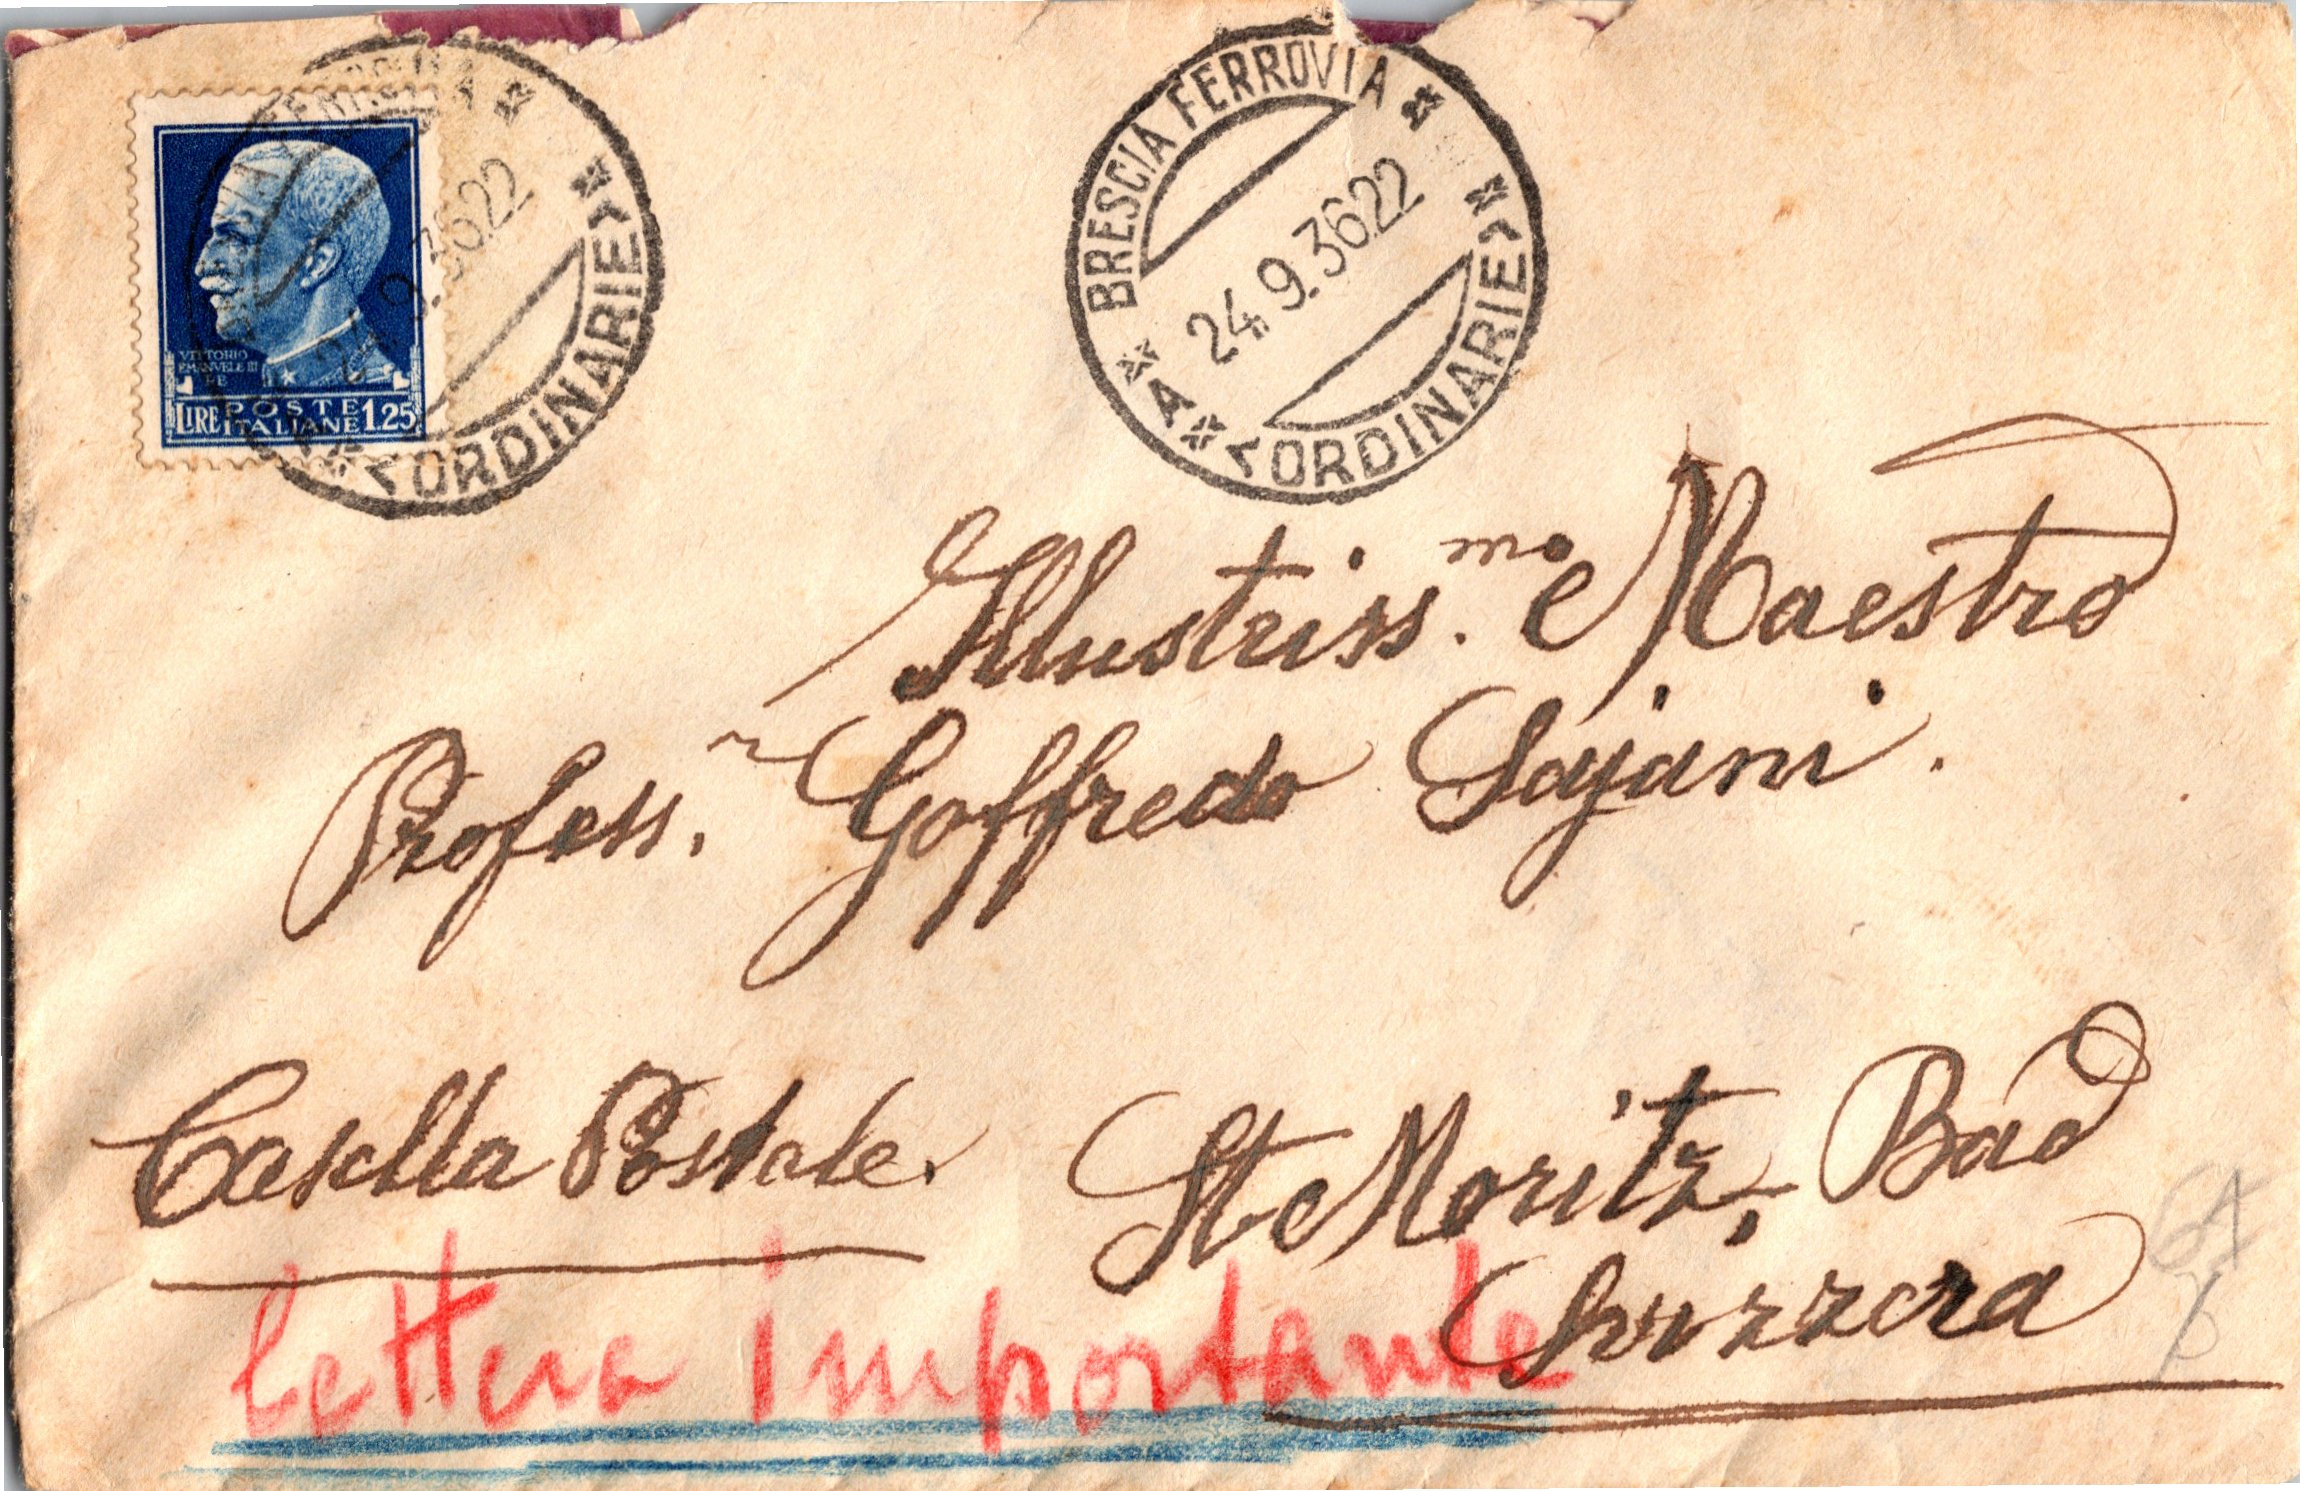 VITTORIO
EMANVELE III
RE
LIRE POSTE ITALIANE 1.25
FERROVIA
24.9.3622
(ORDINARIE)
BRESCIA FERROVIA
24.9.3622
A
(ORDINARIE)
Illustriss.mo e Maestro
Profess.r Goffredo Sajani.
Casella Postale.
St Moritz, Bad
Svizzera
Lettera importante